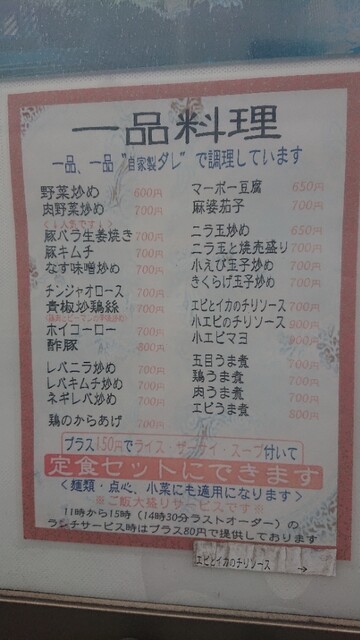 一品料理
一品、一品"自家製ダレ"で調理しています
野菜炒め 600円
肉野菜炒め 700円
<1人気です!>
豚バラ生姜焼き 700円
豚キムチ 700円
なす味噌炒め 700円
チンジャオロース 700円
青椒沙鶏絲 700円
ホイコーロー 700円
酢豚 800円
レバニラ炒め 700円
レバキムチ炒め 700円
ネギレバ炒め 700円
鶏のからあげ 700円
マーボー豆腐 650円
麻婆茄子 700円
ニラ玉炒め 650円
ニラ玉と焼売盛り 700円
小えび玉子炒め 700円
きくらげ玉子炒め 700円
エビとイカのチリソース 700円
小エビのチリソース 900円
小エビマヨ 900円
五目うま煮 700円
鶏うま煮 700円
肉うま煮 700円
エビうま煮 800円
プラス150円でライス・ザーサイ・スープ付いて
定食セットにできます
<麺類・点心、小菜にも適用になります>
※ご飯大盛りサービスです※
11時から15時(14時30分ラストオーダー)の
ランチサービス時はプラス80円で提供しております
エビとイカのチリソース →